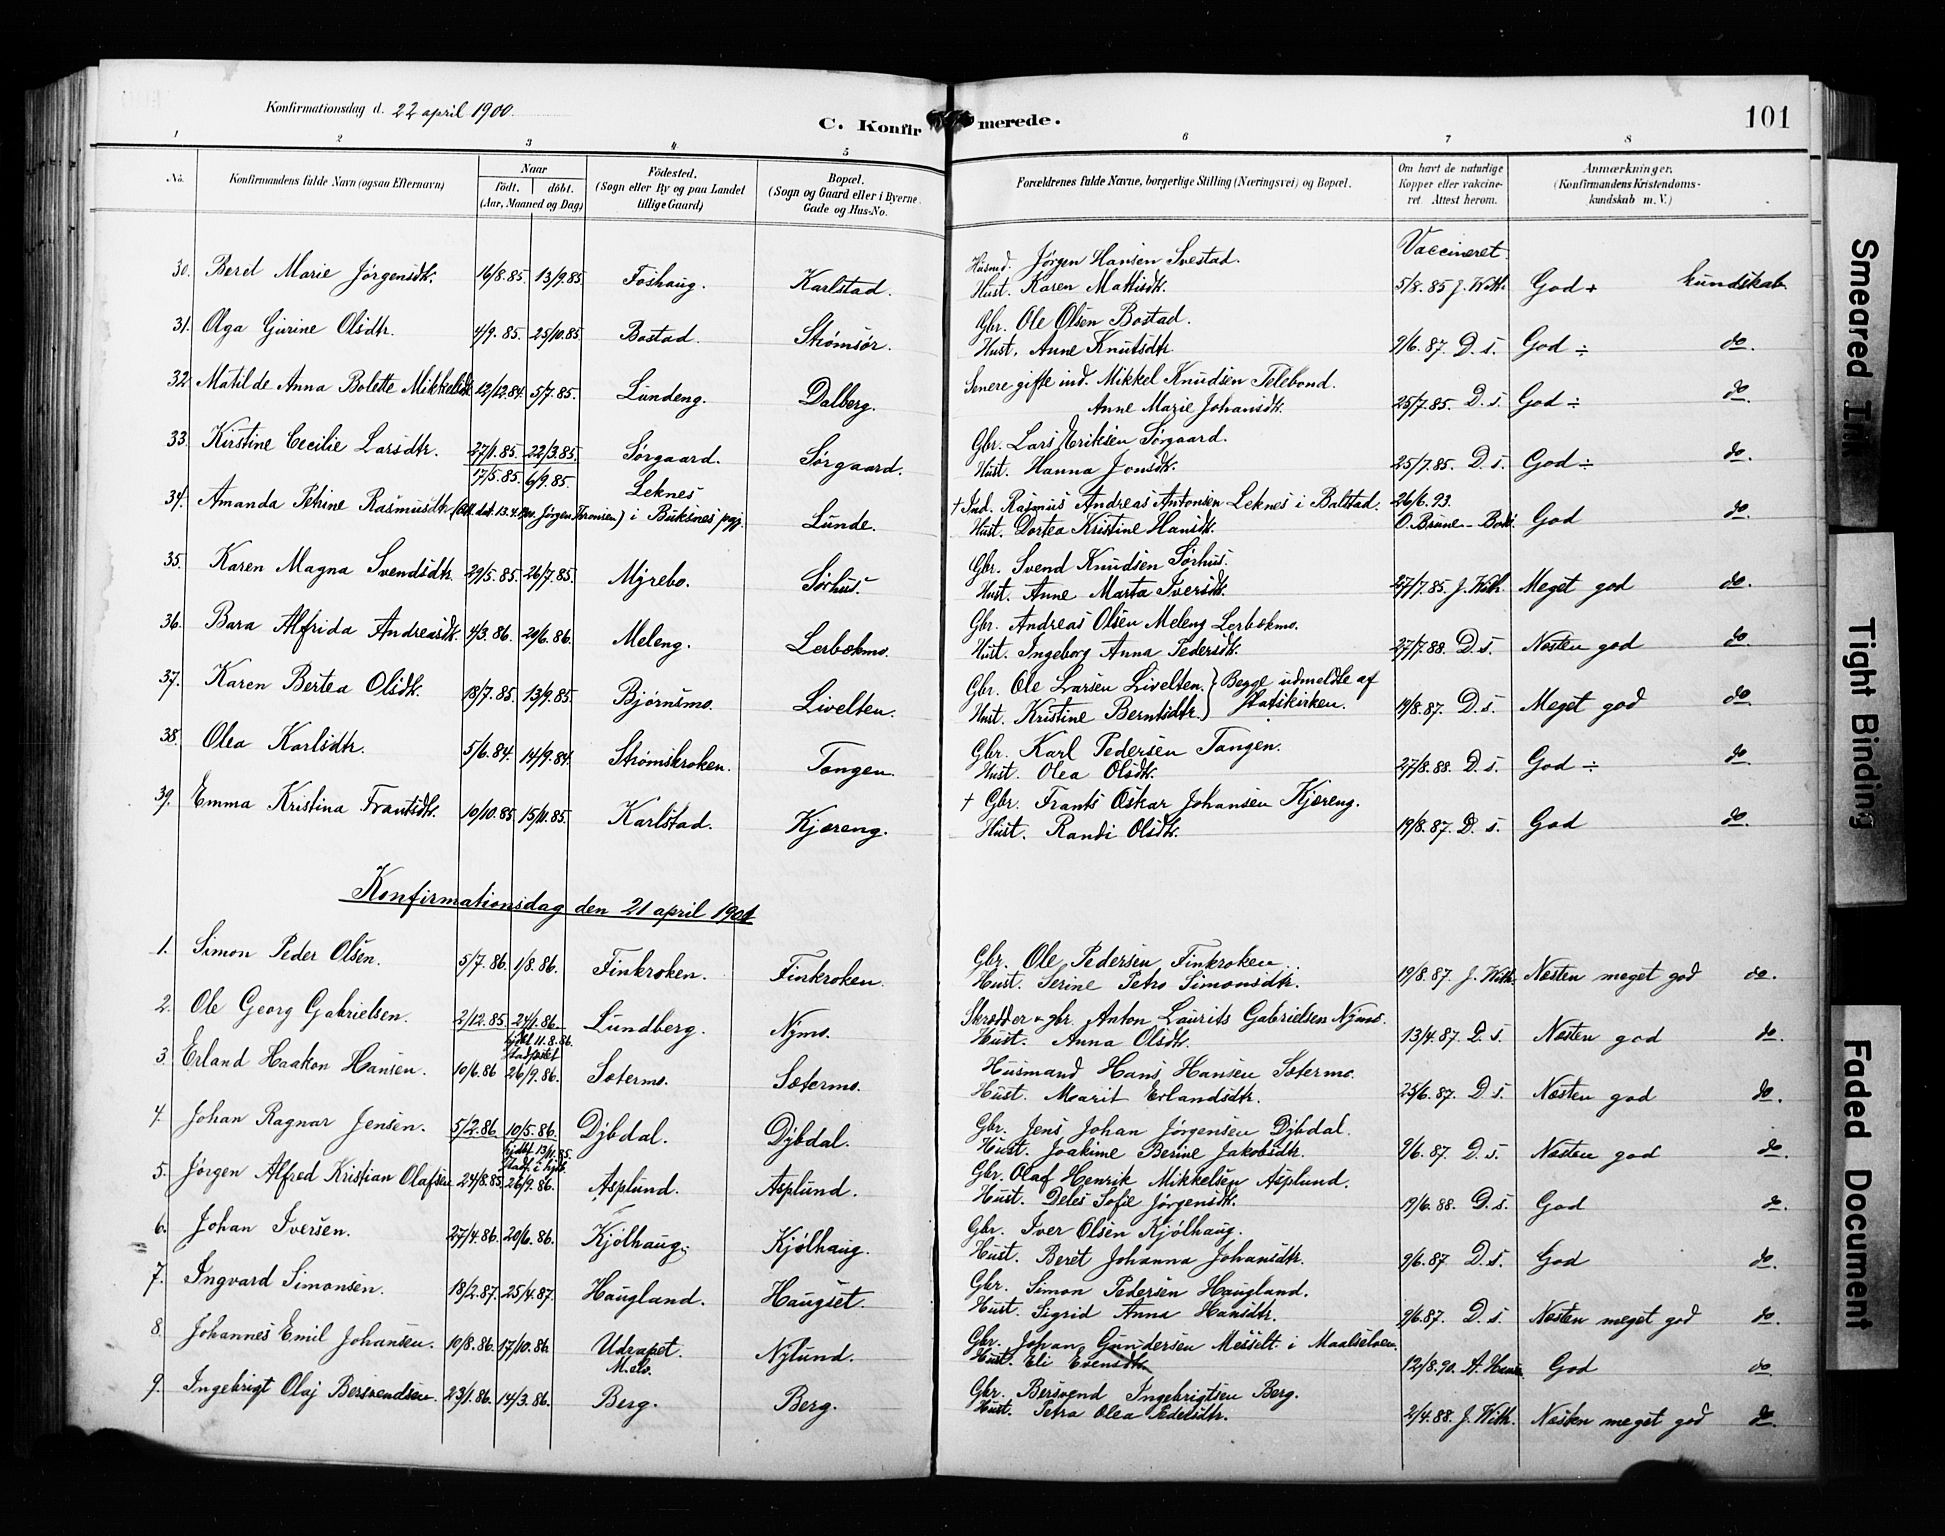 Konfirmationsdag d. 22 april 1900.
C. Konfirmerede.
101
1 2 3 4 5 6 7 8
No. Konfirmandens fulde Navn (ogsaa Efternavn) Naar födt. döbt. (Aar, Maaned og Dag) Födested. (Sogn eller By og paa Landet tillige Gaard) Bopæl. (Sogn og Gaard eller i Byerne Gade og Hus-No. Forældrenes fulde Navne, borgerlige Stilling (Næringsvei) og Bopæl. Om havt de naturlige Kopper eller vakcineret. Attest herom. Anmærkninger. (Konfirmandens Kristendomskundskab m. V.)
30. Berit Marie Jörgensdtr. 16/8.85. 13/9.85. Foshaug. Karlstad. Husmd. Jörgen Hansen Svestad. Vaccineret
Hust. Karen Mathisdtr. 5/8.85 J. Kith. God + kundskab
31. Olga Gurine Olsdtr. 4/9.85. 25/10.85. Bostad. Strömsör. Gbr. Ole Olsen Bostad.
Hust. Anne Knutsdtr. 9/6.87. D. s. God ÷ do.
32. Matilde Anna Bolette Mikkelsdtr. 12/12.84. 5/7.85. Lundeng. Dalberg. Senere gifte ind. Mikkel Knudsen Telebond.
Anne Marie Johansdtr. 25/7.85. D. s. God ÷ do.
33. Kirstine Cecilie Larsdtr. 27/1.85. 22/3.85. Sörgaard. Sörgaard. Gbr. Lars Eriksen Sörgaard.
Hust. Hanna Jonsdtr. 25/7.85. D. s. God ÷ do.
34. Amanda Petrine Rasmusdtr. 17/5.85. 6/9.85. Leknes i Buksnes pgj. Lunde. † Ind. Rasmus Andreas Antonsen Leknes i Balstad. 26/6.93.
Hust. Dortea Kristine Hansdtr. O. Brune - Bodö God do.
35. Karen Magna Svendsdtr. 29/5.85. 26/7.85. Myrebo. Sörhus. Gbr. Svend Knudsen Sörhus.
Hust. Anne Marta Iversdtr. 27/7.85. J. Kith. Meget god do.
36. Bara Alfrida Andreasdtr. 4/3.86. 20/6.86. Meleng. Lerbekmo. Gbr. Andreas Olsen Meleng Lerbekmo.
Hust. Ingeborg Anna Pedersdtr. 27/7.88. D. s. Næsten god do.
37. Karen Bertea Olsdtr. 18/7.85. 13/9.85. Bjørnsmo. Livelten. Gbr. Ole Larsen Livelten. } Begge udmeldte af
Hust. Kristine Berntsdtr. } Statskirken. 19/8.87. D. s. Meget god do.
38. Olea Karlsdtr. 5/6.84. 14/9.84. Strömskroken. Tangen. Gbr. Karl Pedersen Tangen.
Hust. Olea Olsdtr. 27/8.88. D. s. God ÷ do.
39. Emma Kristina Frantsdtr. 10/10.85 15/11.85. Karlstad. Kjæreng. † Gbr. Frants Oskar Johansen Kjæreng.
Hust. Randi Olsdtr. 19/8.87. D. s. God do.
Konfirmationsdag den 21 april 1901
1. Simon Peder Olsen. 5/7.86. 1/8.86. Finkroken. Finkroken. Gbr. Ole Pedersen Finkroken.
Hust. Serine Petra Simonsdtr. 19/8.87. J. Kith. Næsten meget god do.
2. Ole Georg Gabrielsen. 2/12.85. 24/1.86. Lundberg. Nymo. Skrædder & gbr. Anton Laurits Gabrielsen Nymo.
Hust. Anna Olsdtr. 13/4.87. D. s. Næsten god do.
3. Erland Haakon Hansen. 10/6.86 hjdbt 11.8.86. stadfæstet 26/9.86. Sætermo. Sætermo. Husmand Hans Hansen Sætermo.
Hust. Marit Erlandsdtr. 25/6.87. D. s. Næsten god do.
4. Johan Ragnar Jensen. 5/2.86 10/5.86. Dybdal. Dybdal. Gbr. Jens Johan Jörgensen Dybdal.
Hust. Joakime Berine Jakobsdtr. 9/6.87. D. s. Næsten god do.
5. Jörgen Alfred Kristian Olafsen 24/8.85. hjdbt 13/11.85. 26/9.86. Asplund. Asplund. Gbr. Olaf Henrik Mikkelsen Asplund.
Hust. Deles Sofie Jörgensdtr. 19/6.88. D. s. God do.
6. Johan Iversen. 27/4.86. 20/6.86. Kjölhaug. Kjölhaug. Gbr. Iver Olsen Kjölhaug.
Hust. Beret Johanna Johansdtr. 9/6.87. D. s. God do.
7. Ingvard Simonsen. 18/2.87. 25/4.87. Haugland. Haugset. Gbr. Simon Pedersen Haugland.
Hust. Sigrid Anna Hansdtr. 9/6.87. D. s. Næsten meget god do.
8. Johannes Emil Johansen. 10/8.86. 17/10.86. Udrapet. Nylund. Gbr. Johan Gundersen Messelt i Maalselven.
Hust. Eli Evensdtr. 12/8.90. God do.
9. Ingebrigt Olaj Bersvendsen 23/1.86. 14/3.86. Berg. Berg. Gbr. Bersvend Ingebrigtsen Berg.
Hust. Petra Olea Pedersdtr. 2/4.88. J. Kith. Næsten meget god do.
Smeared Ink
Tight Binding
Faded Document